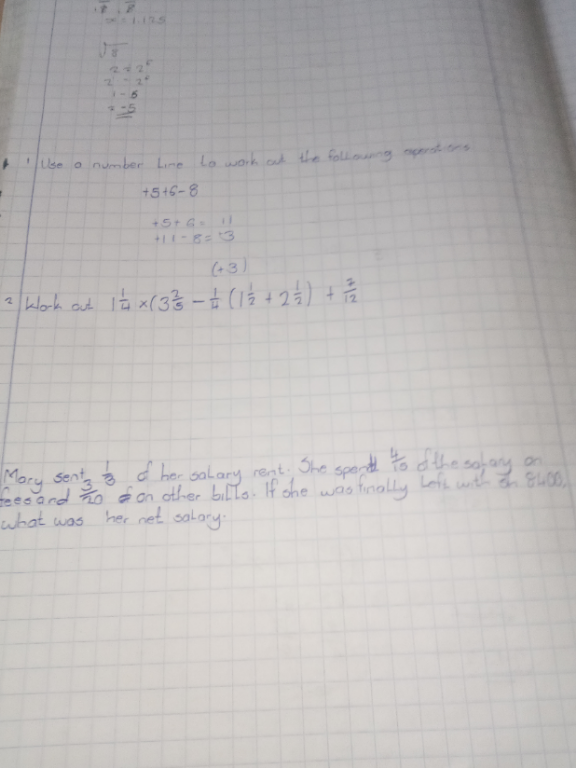 x = 1.125
√8
1 Use a number line to work out the following operations
+5+6-8
+5+6= 11
+11-8= +3
(+3)
2 Work out 1 1/4 ×(3 2/5 - 1/4 (1 1/2 + 2 1/2) + 7/12
Mary sent 1/3 of her salary rent. She spend 4/10 of the salary on
fees and 3/20 on other bills. If she was finally left with sh 8400,
what was her net salary.